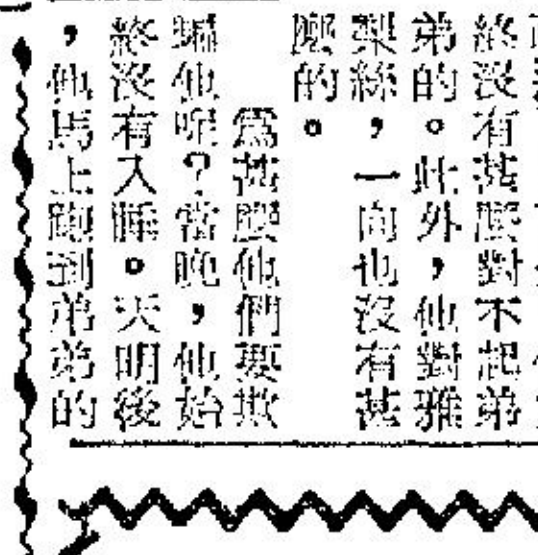 終沒有甚麼對不起弟
弟的。此外，他對雅
梨絲，一向也沒有甚
麼的。
爲甚麼他們要欺
騙他呢？當晚，他始
終沒有入睡。天明後
，他馬上跑到弟弟的